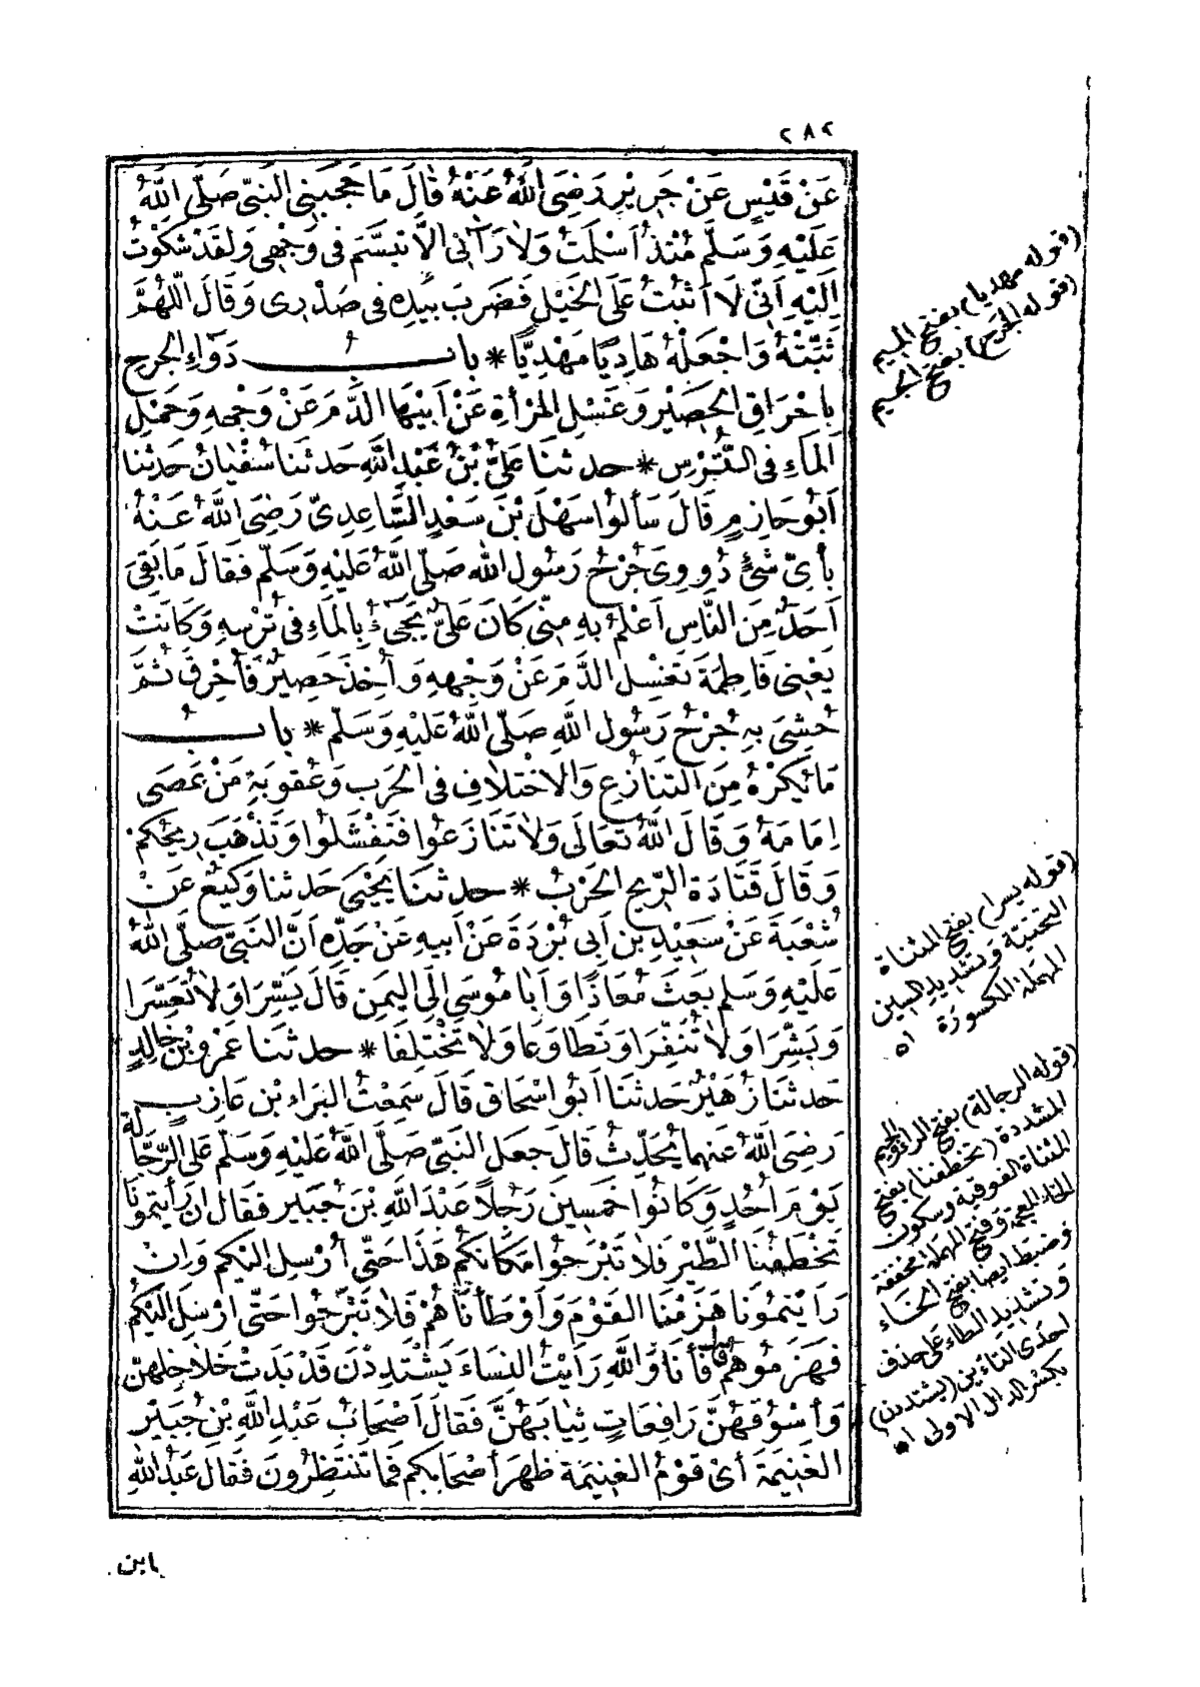 ٢٨٢
عَنْ قَيْسٍ عَنْ جَرِيْرٍ رَضِىَ اللّٰهُ عَنْهُ قَالَ مَا حَجَبَنِى النَّبِىُّ صَلَّى اللّٰهُ
عَلَيْهِ وَسَلَّمَ مُنْذُ اَسْلَمْتُ وَلَا رَآنِى اِلَّا تَبَسَّمَ فِى وَجْهِى وَلَقَدْ شَكَوْتُ
اِلَيْهِ اَنِّى لَا اَثْبُتُ عَلَى الْخَيْلِ فَضَرَبَ بِيَدِهِ فِى صَدْرِى وَقَالَ اللّٰهُمَّ
ثَبِّتْهُ وَاجْعَلْهُ هَادِيًا مَهْدِيًّا * بابُ دَوَاءِ الْجَرْحِ
بِاحْرَاقِ الْحَصِيْرِ وَغَسْلِ الْمَرْأَةِ عَنْ اَبِيْهَا الدَّمَ عَنْ وَجْهِهِ وَحَمْلِ
الْمَاءِ فِى التُّرْسِ * حدثنا عَلِىُّ بْنُ عَبْدِ اللّٰهِ حَدثنَا سُفْيَانُ حَدثنا
اَبُو حَازِمٍ قَالَ سَأَلُوا سَهْلَ بْنَ سَعْدٍ السَّاعِدِىَّ رَضِىَ اللّٰهُ عَنْهُ
بِأَىِّ شَىْءٍ دُووِىَ جُرْحُ رَسُولِ اللّٰهِ صَلَّى اللّٰهُ عَلَيْهِ وَسَلَّمَ فَقَالَ مَا بَقِىَ
اَحَدٌ مِنَ النَّاسِ اَعْلَمُ بِهِ مِنِّى كَانَ عَلِىٌّ يَجِىْءُ بِالْمَاءِ فِى تُرْسِهِ وَكَانَتْ
يَعْنِى فَاطِمَةَ تَغْسِلُ الدَّمَ عَنْ وَجْهِهِ وَاُخِذَ حَصِيْرٌ فَأُحْرِقَ ثُمَّ
حُشِىَ بِهِ جُرْحُ رَسُولِ اللّٰهِ صَلَّى اللّٰهُ عَلَيْهِ وَسَلَّمَ * بابُ
مَا يُكْرَهُ مِنَ التَّنَازُعِ وَالِاخْتِلَافِ فِى الْحَرْبِ وَعُقُوبَةِ مَنْ عَصَى
اِمَامَهُ وَقَالَ اللّٰهُ تَعَالَى وَلَا تَنَازَعُوا فَتَفْشَلُوا وَتَذْهَبَ رِيْحُكُمْ
وَقَالَ قَتَادَةُ الرِّيحُ الْحَرْبُ * حدثنَا يَحْيَى حَدثنا وَكِيْعٌ عَنْ
شُعْبَةَ عَنْ سَعِيْدِ بنِ اَبِى بُرْدَةَ عَنْ اَبِيهِ عَنْ جَدِّهِ اَنَّ النَّبِىَّ صَلَّى اللّٰهُ
عَلَيْهِ وَسَلَّمَ بَعَثَ مُعَاذًا وَاَبَا مُوسَى اِلَى الْيَمَنِ قَالَ يَسِّرَا وَلَا تُعَسِّرَا
وَبَشِّرَا وَلَا تُنَفِّرَا وَتَطَاوَعَا وَلَا تَخْتَلِفَا * حدثنا عَمْرُو بْنُ خَالِدٍ
حَدثنَا زُهَيْرٌ حَدثنَا اَبُو اِسْحَاقَ قَالَ سَمِعْتُ الْبَرَاءَ بْنَ عَازِبٍ
رَضِىَ اللّٰهُ عَنْهُمَا يُحَدِّثُ قَالَ جَعَلَ النَّبِىُّ صَلَّى اللّٰهُ عَلَيْهِ وَسَلَّمَ عَلَى الرَّجَّالَةِ
يَوْمَ اُحُدٍ وَكَانُوا خَمْسِينَ رَجُلاً عَبْدَ اللّٰهِ بْنَ جُبَيْرٍ فَقَالَ اِنْ رَأَيْتُمُونَا
تَخْطَفُنَا الطَّيْرُ فَلَا تَبْرَحُوا مَكَانَكُمْ هَذَا حَتَّى أُرْسِلَ اِلَيْكُمْ وَاِنْ
رَأَيْتُمُونَا هَزَمْنَا الْقَوْمَ وَأَوْطَأْنَاهُمْ فَلَا تَبْرَحُوا حَتَّى اُرْسِلَ اِلَيْكُمْ
فَهَزَمُوهُمْ قال فَأَنَا وَاللّٰهِ رَاَيْتُ النِّسَاءَ يَشْتَدِدْنَ قَدْ بَدَتْ خَلَاخِلُهُنَّ
وَأَسْوُقُهُنَّ رَافِعَاتٍ ثِيَابَهُنَّ فَقَالَ اَصْحَابُ عَبْدِ اللّٰهِ بْنِ جُبَيْرٍ
الْغَنِيْمَةَ اَىْ قَوْمُ الْغَنِيْمَةَ ظَهَرَ أَصْحَابُكُمْ فَمَا تَنْتَظِرُونَ فَقَالَ عَبْدُ اللّٰهِ
ابن
(قوله مهديا) بفتح الميم
(قوله الجرح) بفتح الجيم
(قوله يسرا) بفتح المثناة
التحتية وتشديد السين
المهملة المكسورة اه
(قوله الرجالة) بفتح الراء والجيم
المشددة (تخطفنا) بفتح
المثناة الفوقية وسكون
الخاء المعجمة وفتح المهملة مخففة
وضبط ايضا بفتح الخاء
وتشديد الطاء على حذف
احدى التاءين (يشتددن)
بكسر الدال الاولى اه